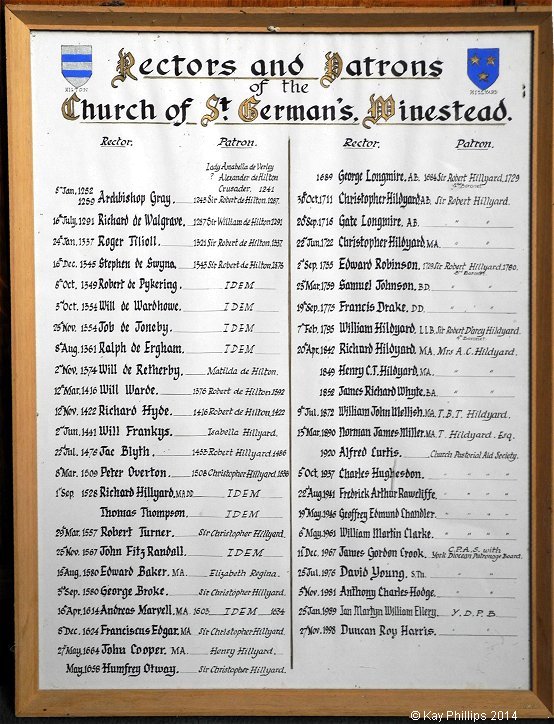 Rectors and Patrons
of the
Church of St German's, Winestead.
HILTON
HILLYARD
Rector. Patron.
Lady Anabella de Verley
? Alexander de Hilton
Crusader. 1241
5th Jan, 1252
1259 Archbishop Gray. 1243 Sir Robert de Hilton. 1257.
16th July, 1291 Richard de Walgrave. 1257 Sir William de Hilton 1291
24th Jan, 1337 Roger Tilioll. 1321 Sir Robert de Hilton. 1337
16th Dec. 1345 Stephen de Swyna. 1343 Sir Robert de Hilton. 1376
5th Oct, 1349 Robert de Pykering. IDEM
5th Oct, 1354 Will de Wardhowe. IDEM
25th Nov, 1354 Job de Joneby. IDEM
8th Aug, 1361 Ralph de Ergham. IDEM
2nd Nov, 1374 Will de Retherby. Matilda de Hilton.
12th Mar, 1416 Will Warde. 1376 Robert de Hilton. 1392
12th Nov, 1422 Richard Hyde. 1416 Robert de Hilton. 1422
2nd Jun, 1441 Will Frankys. Isabella Hillyard.
25th Jul, 1476 Jac Blyth. 1455 Robert Hillyard. 1486
8th Mar, 1509 Peter Overton. 1508 Christopher Hillyard. 1538
1st Sep. 1528 Richard Hillyard, MA DD IDEM
Thomas Thompson. IDEM
29th Mar, 1557 Robert Turner. Sir Christopher Hillyard.
25th Nov, 1567 John Fitz Randall. IDEM
15th Aug, 1580 Edward Baker. MA. Elizabeth Regina.
3rd Sep, 1580 George Broke. Sir Christopher Hillyard.
16th Apr, 1614 Andreas Marvell, MA 1603. IDEM 1634
6th Dec, 1624 Franciscus Edgar, MA Sir Christopher Hillyard.
27th May, 1664 John Cooper. MA. Henry Hillyard.
May, 1658 Humfrey Otway. Sir Christopher Hillyard.
Rector. Patron.
1689 George Longmire, A.B. 1684 Sir Robert Hillyard, 1729
3rd Oct, 1711 Christopher Hildyard A.B. Sir Robert Hillyard.
20th Sep, 1716 Gate Longmire, A.B. " "
22nd Jun, 1722 Christopher Hildyard, MA. " "
2nd Sep, 1735 Edward Robinson. 1729 Sir Robert Hillyard. 1780.
25th Mar, 1759 Samuel Johnson, B.D. " "
19th Sep, 1775 Francis Drake, D.D. " "
7th Feb, 1795 William Hildyard, LLB. Sir Robert D'arcy Hildyard.
4th Baronet
20th Apr, 1842 Richard Hildyard, MA. Mrs A. C. Hildyard.
1849 Henry C.T. Hildyard, MA. " "
1852 James Richard Whyte, BA. " "
9th Jul, 1872 William John Mellish, MA. T. B. T. Hildyard.
15th Mar, 1890 Norman James Miller, MA T. Hildyard. Esq.
1920 Alfred Curtis. Church Pastorial Aid Society.
5th Oct, 1937 Charles Hughesdon. " " "
22nd Aug, 1941 Fredrick Arthur Rawcliffe. " " "
19th May, 1946 Geoffrey Edmund Chandler. " " "
6th May, 1961 William Martin Clarke. " " "
11th Dec, 1967 James Gordon Crook. C.P.A.S. with
York Diocean Patronage Board.
25th Jul, 1976 David Young, S.Th. " "
5th Nov, 1981 Anthony Charles Hodge. " "
25th Jan, 1989 Ian Martyn William Ellery. Y.D.P.B.
27th Nov, 1998 Duncan Roy Harris. " "
© Kay Phillips 2014